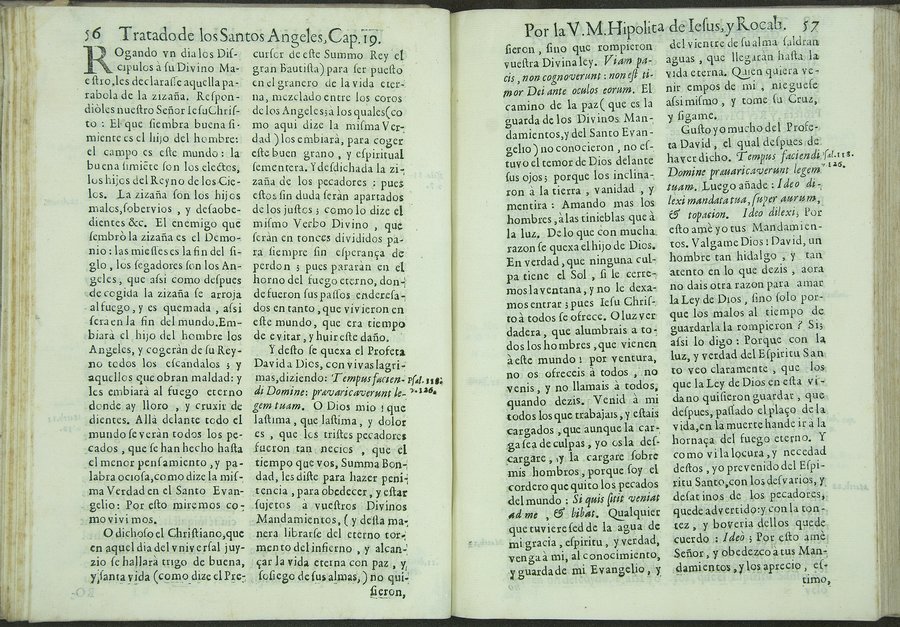 56 Tratado de los Santos Angeles, Cap. 19.
ROgando vn dia los Dis-
cipulos à su Divino Ma-
estro, les declarasse aquella pa-
rabola de la zizaña. Respon-
dióles nuestro Señor IesuChris-
to: El que siembra buena si-
miente es el hijo del hombre:
el campo es este mundo: la
buena simiēte son los electos,
los hijos del Reyno de los Cie-
los. La zizaña son los hijos
malos, sobervios, y desaobe-
dientes &c. El enemigo que
sembrò la zizaña es el Demo-
nio: las miesses es la fin del si-
glo, los segadores son los An-
geles, que assi como despues
de cogida la zizaña se arroja
al fuego, y es quemada, assi
serà en la fin del mundo. Em-
biarà el hijo del hombre los
Angeles, y cogeràn de su Rey-
no todos los escandalos; y
aquellos que obran maldad: y
les embiarà al fuego eterno
donde ay lloro, y cruxir de
dientes. Allà delante todo el
mundo se veràn todos los pe-
cados, que se han hecho hasta
el menor pensamiento, y pa-
labra ociosa, como dize la mis-
ma Verdad en el Santo Evan-
gelio: Por esto miremos co-
mo vivimos.
O dichoso el Christiano, que
en aquel dia del vniversal juy-
zio se hallarà trigo de buena,
y santa vida (como dize el Pre-
cursor de este Summo Rey el
gran Bautista) para ser puesto
en el granero de la vida eter-
na, mezclado entre los coros
de los Angeles; a los quales (co
mo aqui dize la misma Ver-
dad) los embiarà, para coger
este buen grano, y espiritual
sementera. Y desdichada la zi-
zaña de los pecadores; pues
estos sin duda seràn apartados
de los justos; como lo dize el
mismo Verbo Divino, que
seràn en tonces divididos pa-
ra siempre sin esperança de
perdon; pues pararàn en el
horno del fuego eterno, don-
de fueron sus passos endereça-
dos en tanto, que vivieron en
este mundo, que era tiempo
de evitar, y huir este daño.
Y desto se quexa el Profeta
David a Dios, con vivas lagri-
mas, diziendo: Tempus facien-
di Domine: prævaricaverunt le-
gem tuam. O Dios mio! que
lastima, que lastima, y dolor
es, que los tristes pecadores
fueron tan necios, que el
tiempo que vos, Summa Bon-
dad, les diste para hazer peni-
tencia, para obedecer, y estar
sujetos à vuestros Divinos
Mandamientos, (y desta ma-
nera librarse del eterno tor-
mento del infierno, y alcan-
çar la vida eterna con paz, y
sosiego de sus almas,) no qui-
sieron,
Psal. 118.
v. 126.
Por la V. M. Hipolita de Iesus, y Rocab. 57
sieron, sino que rompieron
vuestra Divina ley. Viam pa-
cis, non cognoverunt: non est ti-
mor Dei ante oculos eorum. El
camino de la paz (que es la
guarda de los Divinos Man-
damientos, y del Santo Evan-
gelio) no conocieron, no es-
tuvo el temor de Dios delante
sus ojos; porque los inclina-
ron à la tierra, vanidad, y
mentira: Amando mas los
hombres, à las tinieblas que à
la luz. De lo que con mucha
razon se quexa el hijo de Dios.
En verdad, que ninguna cul-
pa tiene el Sol, si le cerre-
mos la ventana, y no le dexa-
mos entrar; pues Iesu Chris-
to à todos se ofrece. O luz ver
dadera, que alumbrais a to-
dos los hombres, que vienen
à este mundo! por ventura,
no os ofreceis à todos, no
venis, y no llamais à todos,
quando dezis. Venid à mi
todos los que trabajais, y estais
cargados, que aunque la car-
ga sea de culpas, yo os la des-
cargare, y la cargare sobre
mis hombros, porque soy el
cordero que quito los pecados
del mundo: Si quis sitit veniat
ad me, & bibat. Qualquier
que tuviere sed de la agua de
mi gracia, espiritu, y verdad,
venga à mi, al conocimiento,
y guarda de mi Evangelio, y
del vientre de su alma saldràn
aguas, que llegaràn hasta la
vida eterna. Quien quiera ve-
nir empos de mi, nieguese
assi mismo, y tome su Cruz,
y sigame.
Gusto yo mucho del Profe-
ta David, el qual despues de
haver dicho. Tempus faciendi
Domine prævaricaverunt legem
tuam. Luego añade: Ideo di-
lexi mandata tua, super aurum,
& topacion. Ideo dilexi, Por
esto amè yo tus Mandamien-
tos. Valgame Dios! David, un
hombre tan hidalgo, y tan
atento en lo que dezis, aora
no dais otra razon para amar
la Ley de Dios, sino solo por-
que los malos al tiempo de
guardarla la rompieron? Si;
assi lo digo: Porque con la
luz, y verdad del Espiritu San
to veo claramente, que los
que la Ley de Dios en esta vi-
da no quisieron guardar, que
despues, passado el plaço de la
vida, en la muerte han de ir à la
hornaça del fuego eterno. Y
como vi la locura, y necedad
destos, yo prevenido del Espi-
ritu Santo, con los desvarios, y
desatinos de los pecadores,
quede advertido: y con la ton-
tez, y boveria dellos quede
cuerdo: Ideo; Por esto amè
Señor, y obedezco a tus Man-
damientos, y los aprecio, es-
timo,
Psal. 118.
v. 126.